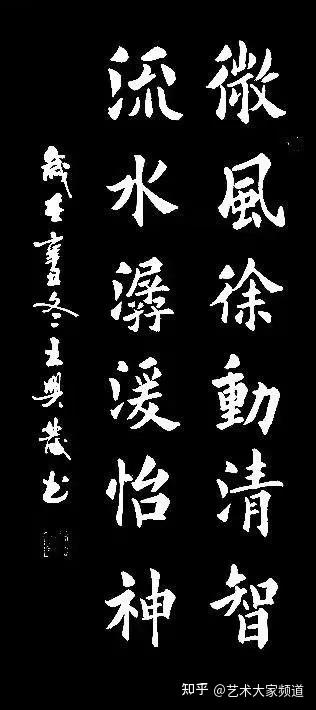 微風徐動清智
流水潺湲怡神
歲在辛丑冬王興书
知乎 @艺术大家频道